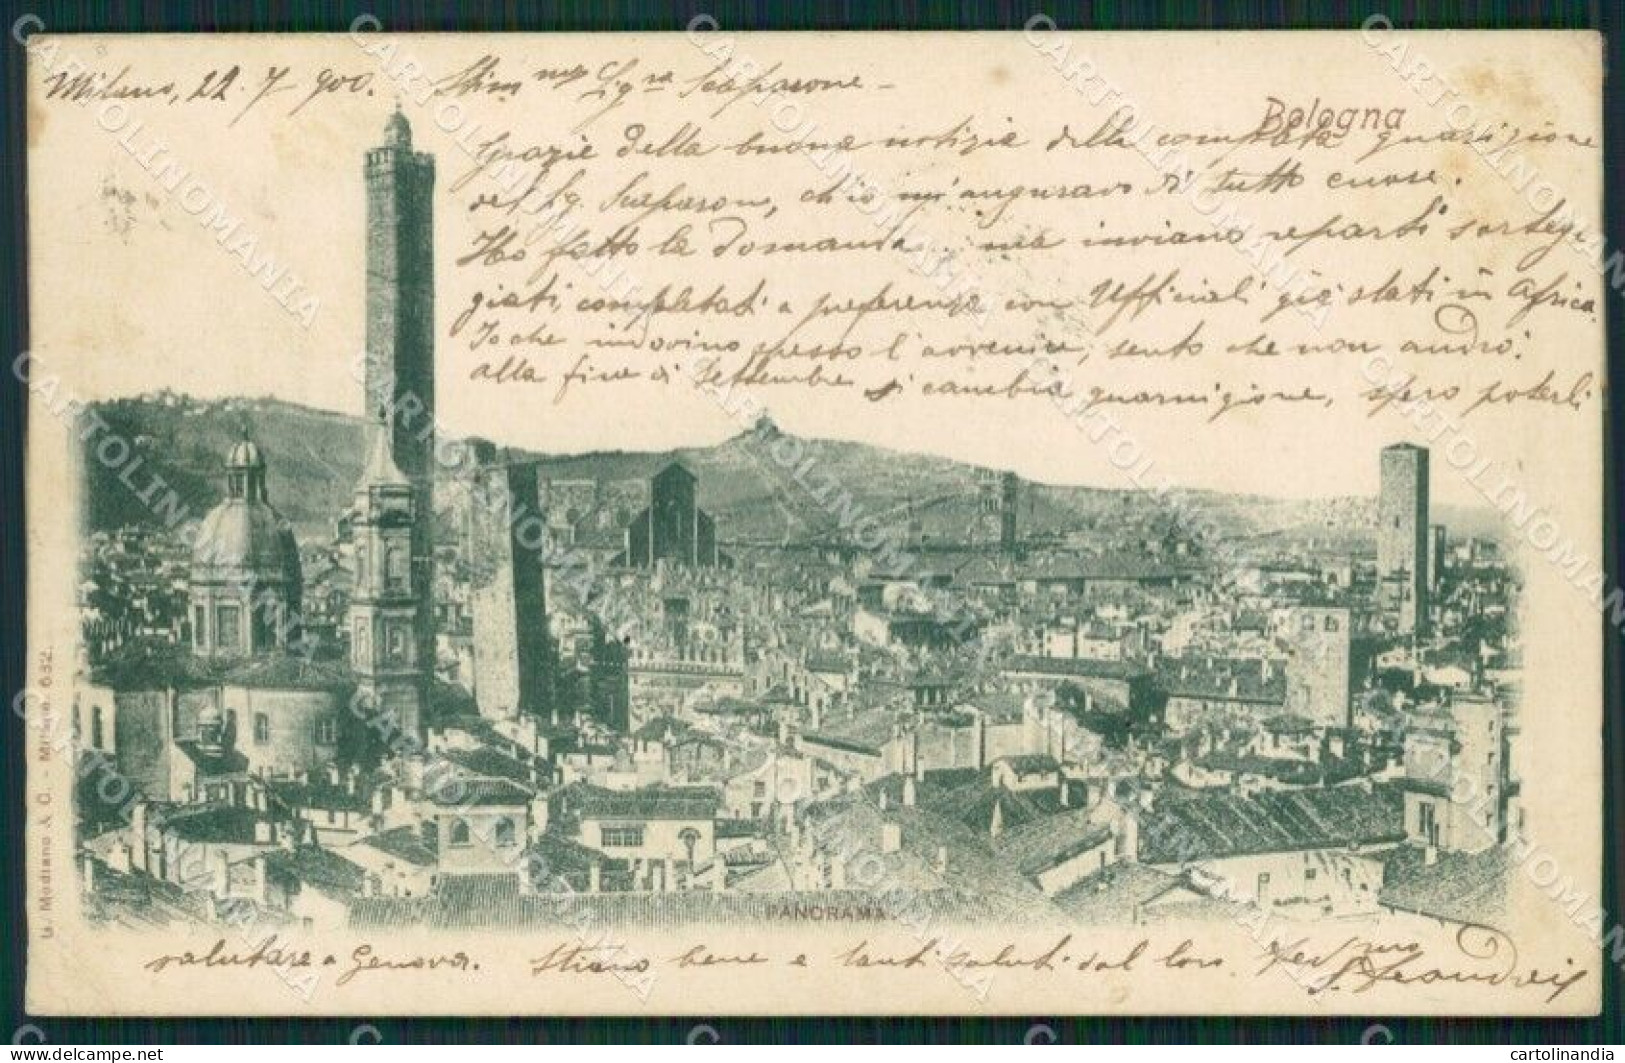 Milano, 22. 7 - 900. Stim.ma Sig.ra Scaparone -
Bologna
Grazie della buona notizia della completa guarigione
del Sig. Scaparone, ch'io m'auguravo di tutto cuore.
Ho fatto la domanda... ma inviano reparti sorteg
giati, completati a preferenza con Ufficiali già stati in Africa.
Io che indovino spesso l'avvenire, sento che non andrò:
alla fine di Settembre si cambia guarnigione, spero poterli
PANORAMA.
salutare a Genova. Stiano bene e tanti saluti dal loro
G. Modiano & C. - Milano 632.
CARTOLINOMANIA
cartolinandia